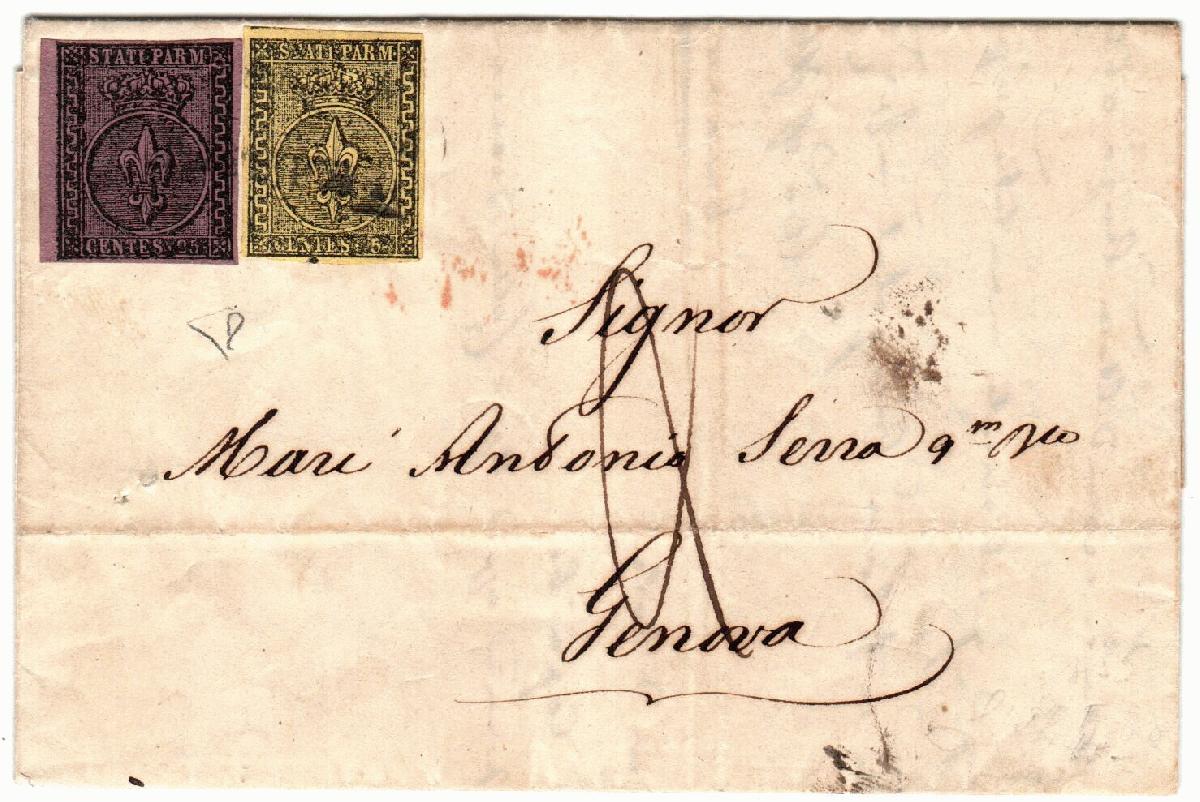 STATI PARM
CENTES. 25
STATI PARM.
CENTES. 5
Signor
Mari Antonio Serra q.m
Genova